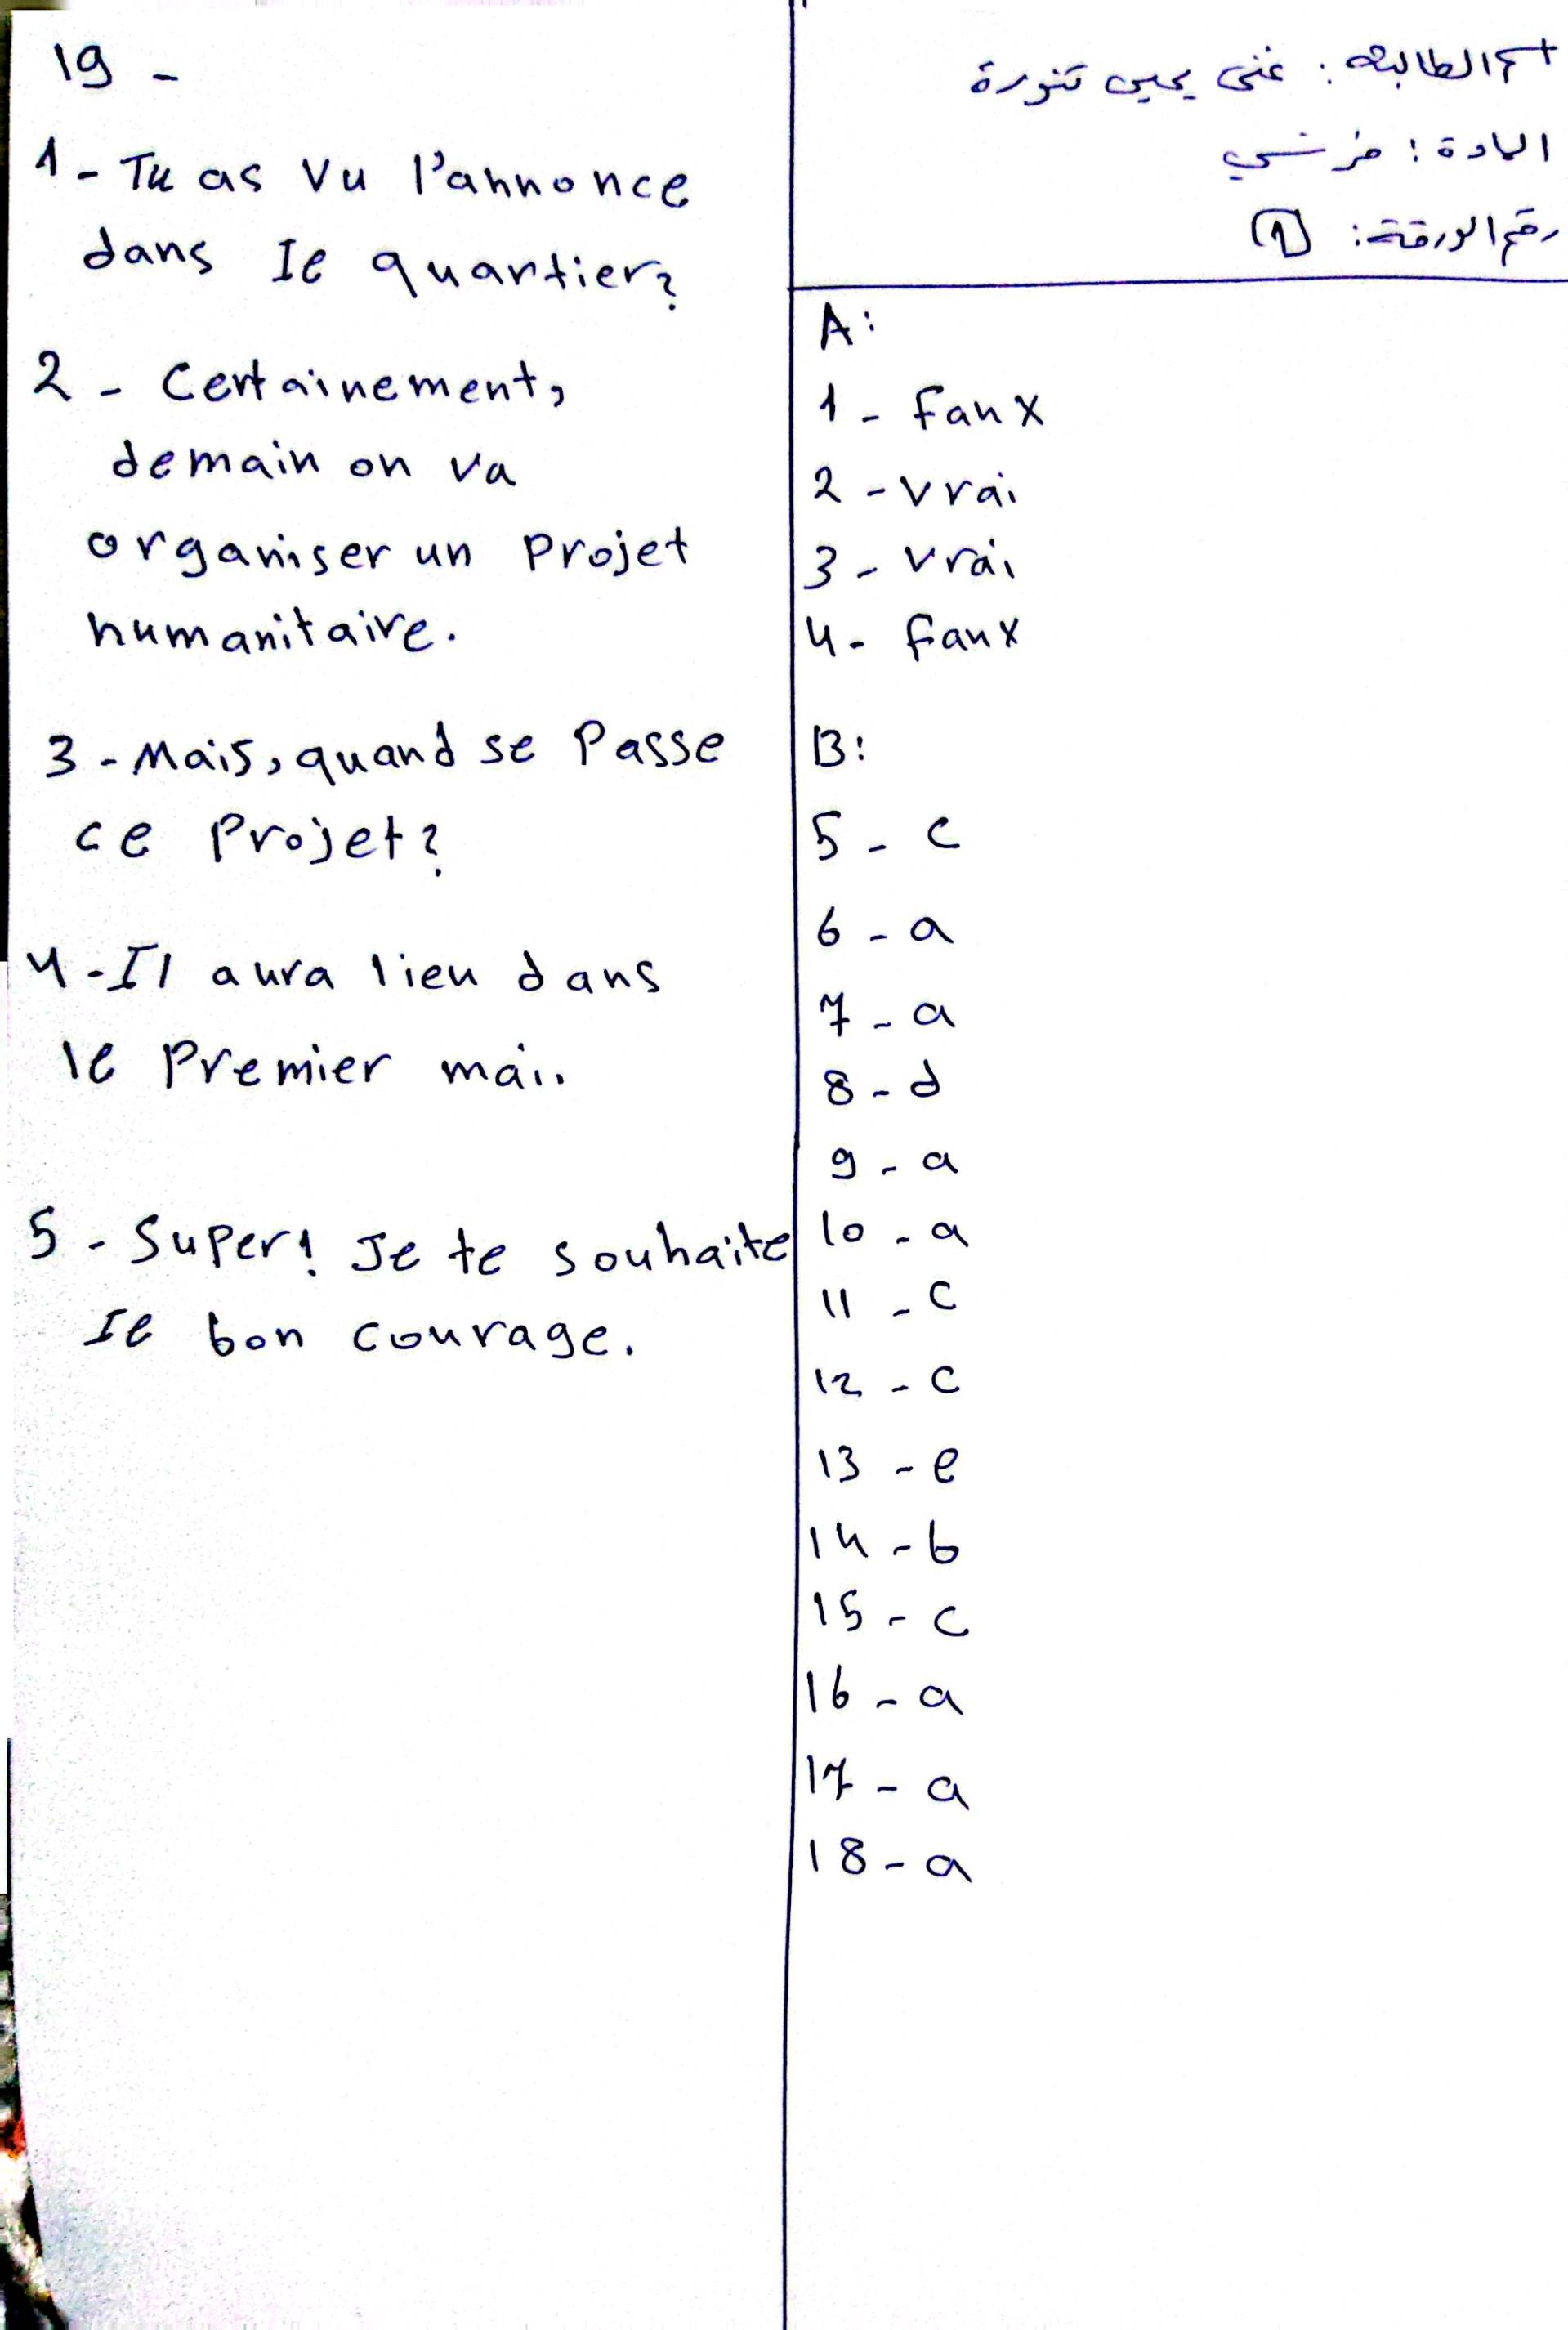 اسم الطالبة: غنى يحيى تنورة
المادة: فرنسي
رقم الورقة: 1
A:
1 - Faux
2 - vrai
3 - vrai
4 - Faux
B:
5 - c
6 - a
7 - a
8 - d
9 - a
10 - a
11 - c
12 - c
13 - e
14 - b
15 - c
16 - a
17 - a
18 - a
19 -
1 - Tu as vu l'annonce
dans le quartier?
2 - Certainement,
demain on va
organiser un projet
humanitaire.
3 - Mais, quand se passe
ce projet?
4 - Il aura lieu dans
le premier mai.
5 - Super! Je te souhaite
le bon courage.